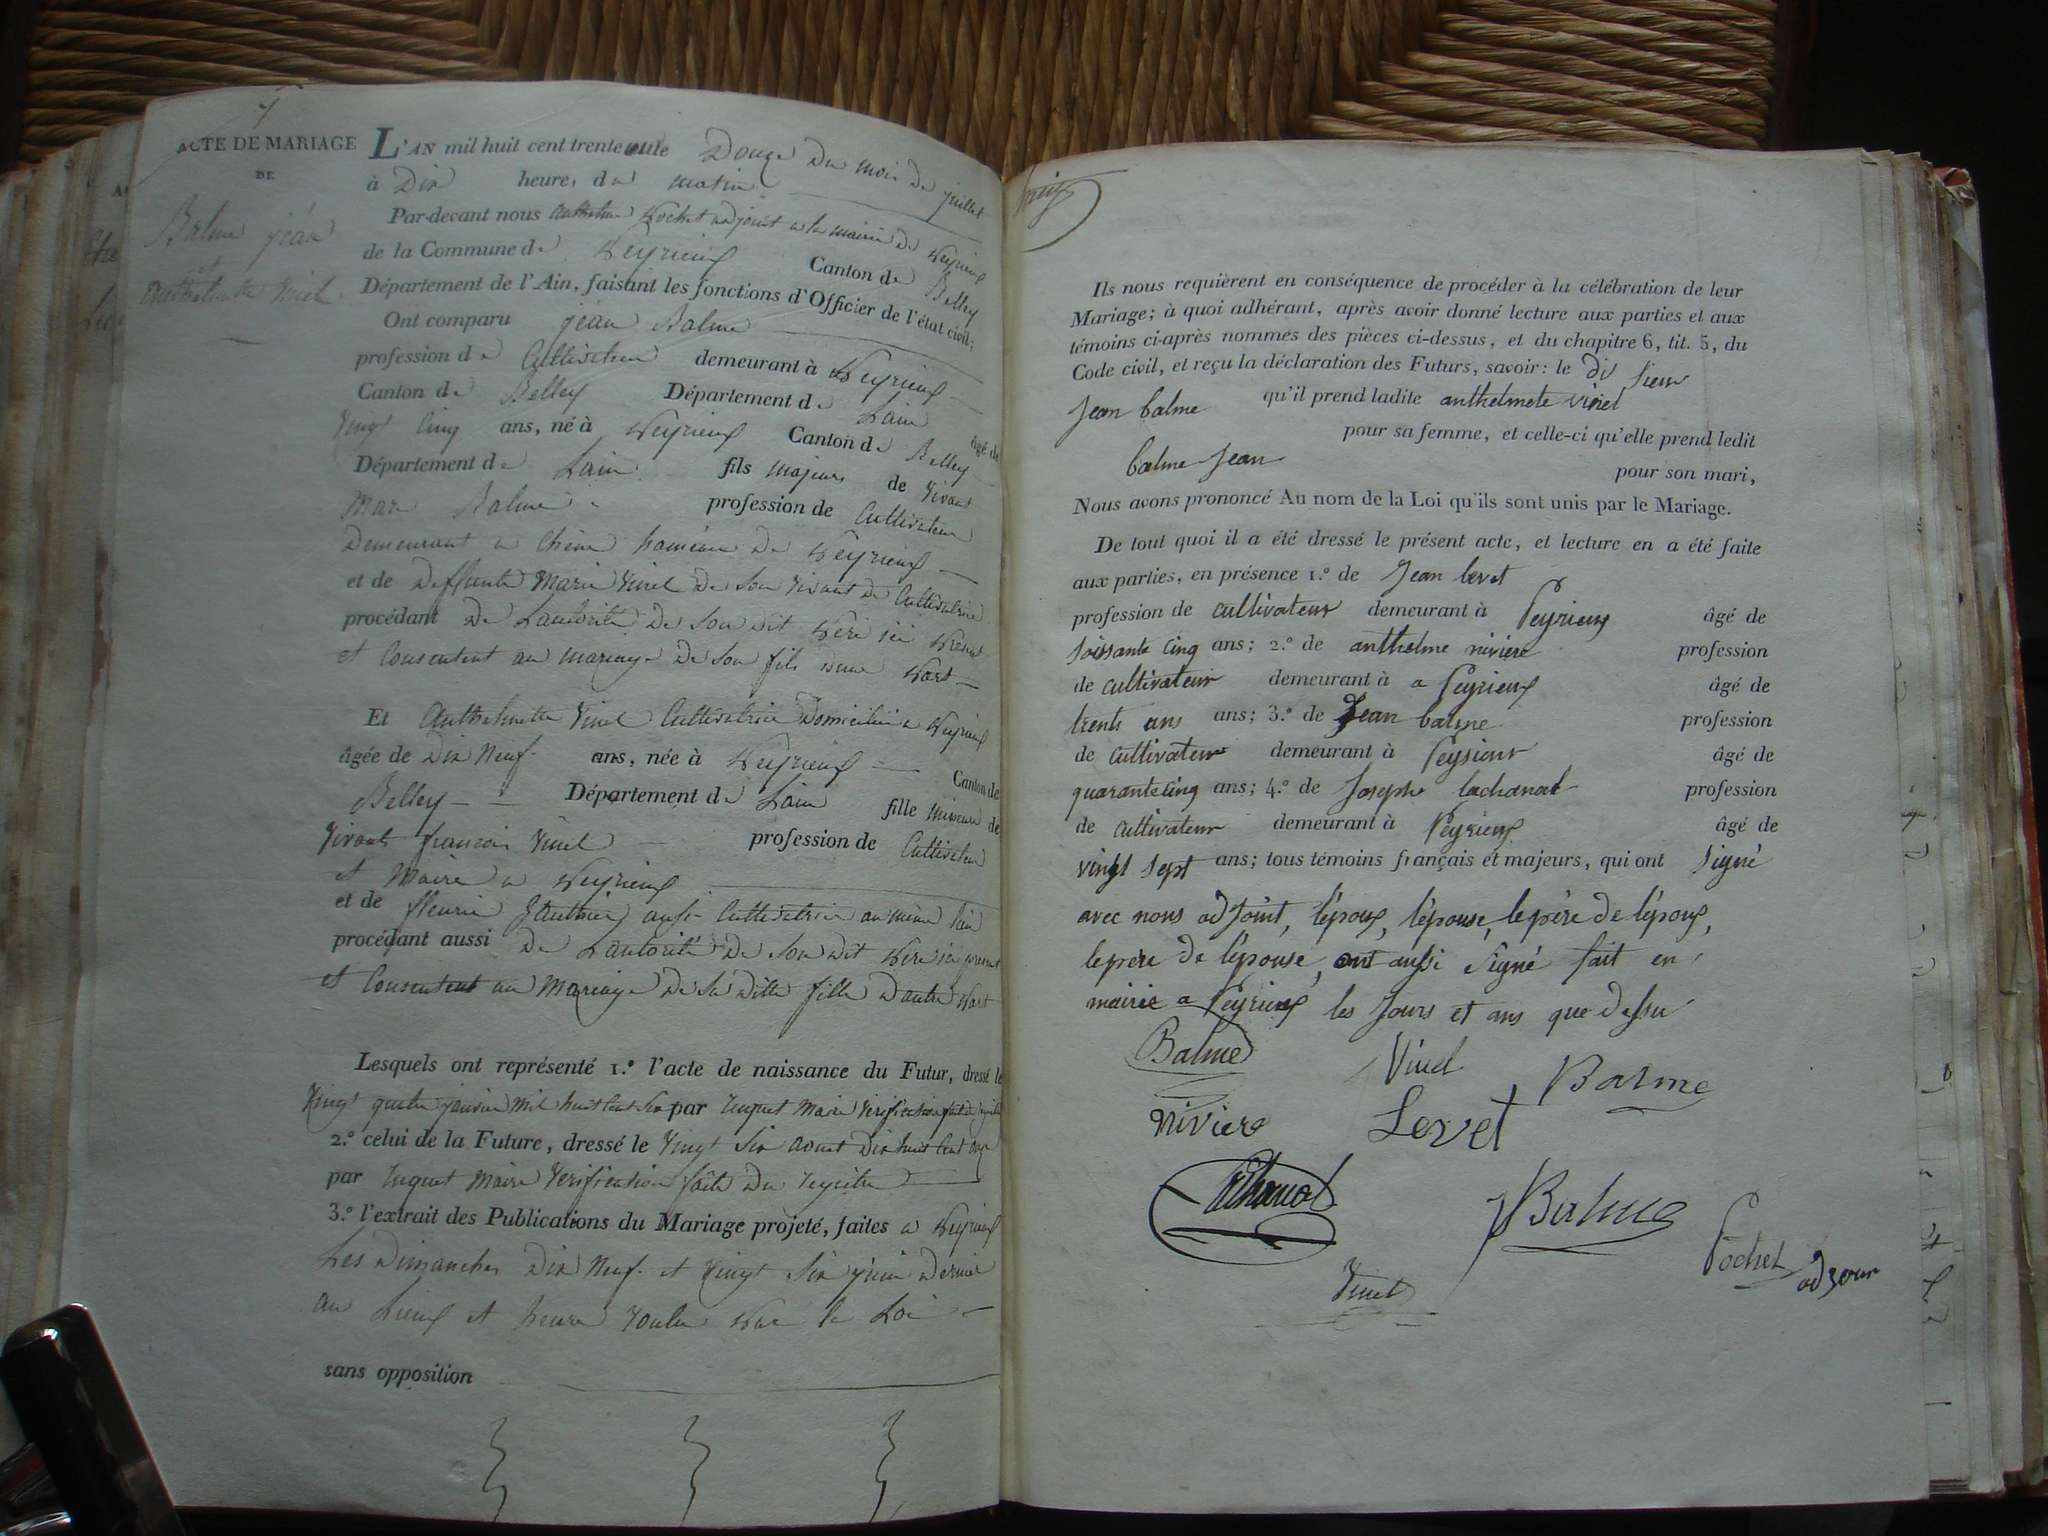 7
ACTE DE MARIAGE
DE
Balme jean
et
anthelmette Vinel
L'AN mil huit cent trente Douze du mois de juillet
à Dix heures du matin
Par-devant nous anthelme Pochet adjoint a la mairie de Peyrieux
de la Commune de Peyrieux Canton de Belley
Département de l'Ain, faisant les fonctions d'Officier de l'état civil;
Ont comparu jean Balme
profession de Cultivateur demeurant à Peyrieux
Canton de Belley Département de Lain âgé de
Vingt Cinq ans, né à Peyrieux Canton de Belley
Département de Lain fils majeur de vivant
Marc Balme profession de Cultivateur
Demeurant a Chêne hameau de Peyrieux
et de Deffunte Marie Vinel De Son vivant De Cultivatrice
procédant De Lautorité De Son dit Père ici Présent
et Consentent au mariage De Son fils d'une Part
Et Anthelmette Vinel Cultivatrice Domiciliée a Peyrieux
âgée de Dix Neuf ans, née à Peyrieux Canton de
Belley Département de Lain fille mineure de
vivant francois Vinel profession de Cultivateur
et Maire a Peyrieux
et de fleurie Gauthier aussi Cultivatrice au même lieu
procédant aussi De Lautorité De Son Dit Père ici présent
et Consentent au Mariage De Sa Ditte fille D'autre Part
Lesquels ont représenté 1.º l'acte de naissance du Futur, dressé le
Vingt quatre janvier Mil huit Cent Six par Tuquet Maire Vérification faite du registre
2.º celui de la Future, dressé le Vingt Six aoust Dix huit Cent onze
par Tuquet Maire Vérification faite Du registre
3.º l'extrait des Publications du Mariage projeté, faites a Peyrieux
Les Dimanches Dix Neuf et Vingt Six juin Dernier
au Lieux et heure voulu Par la Loi
sans opposition
huit
Ils nous requièrent en conséquence de procéder à la célébration de leur
Mariage; à quoi adhérant, après avoir donné lecture aux parties et aux
témoins ci-après nommés des pièces ci-dessus, et du chapitre 6, tit. 5, du
Code civil, et reçu la déclaration des Futurs, savoir: le dit Sieur
Jean balme qu'il prend ladite anthelmete vinel
pour sa femme, et celle-ci qu'elle prend ledit
balme Jean pour son mari,
Nous avons prononcé Au nom de la Loi qu'ils sont unis par le Mariage.
De tout quoi il a été dressé le présent acte, et lecture en a été faite
aux parties, en présence 1.º de Jean levet
profession de cultivateur demeurant à Peyrieux âgé de
soissante cinq ans; 2.º de anthelme riviere profession
de cultivateur demeurant à a Peyrieux âgé de
trente ans ans; 3.º de Jean balme profession
de cultivateur demeurant à Peyrieux âgé de
quarantecinq ans; 4.º de Joseph lachanal profession
de cultivateur demeurant à Peyrieux âgé de
vingt sept ans; tous témoins français et majeurs, qui ont signé
avec nous adjoint, l'époux, l'épouse, le père de l'époux,
le père de l'épouse, ont aussi signé fait en
mairie a Peyrieux les Jours et ans que dessu
Balme Vinel Balme
riviere Levet
lachanal JBalme
Vinel Pochet adjoin